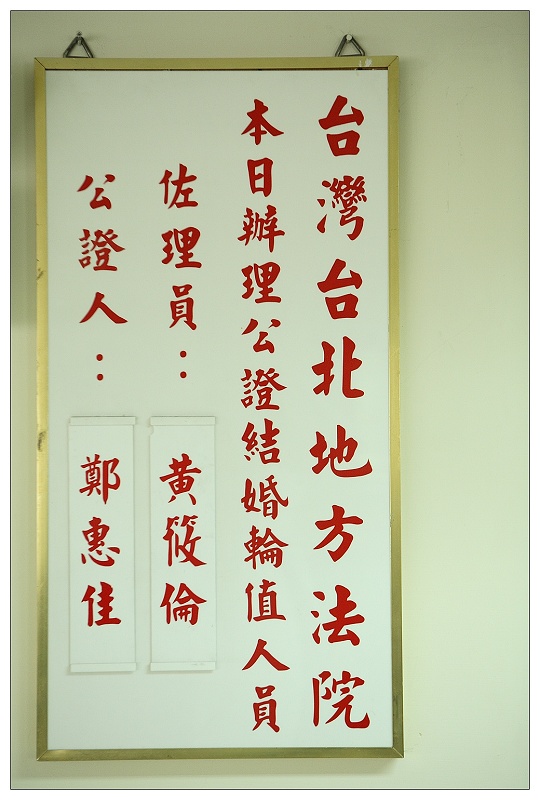 台灣台北地方法院
本日辦理公證結婚輪值人員
佐理員：黃筱倫
公證人：鄭惠佳